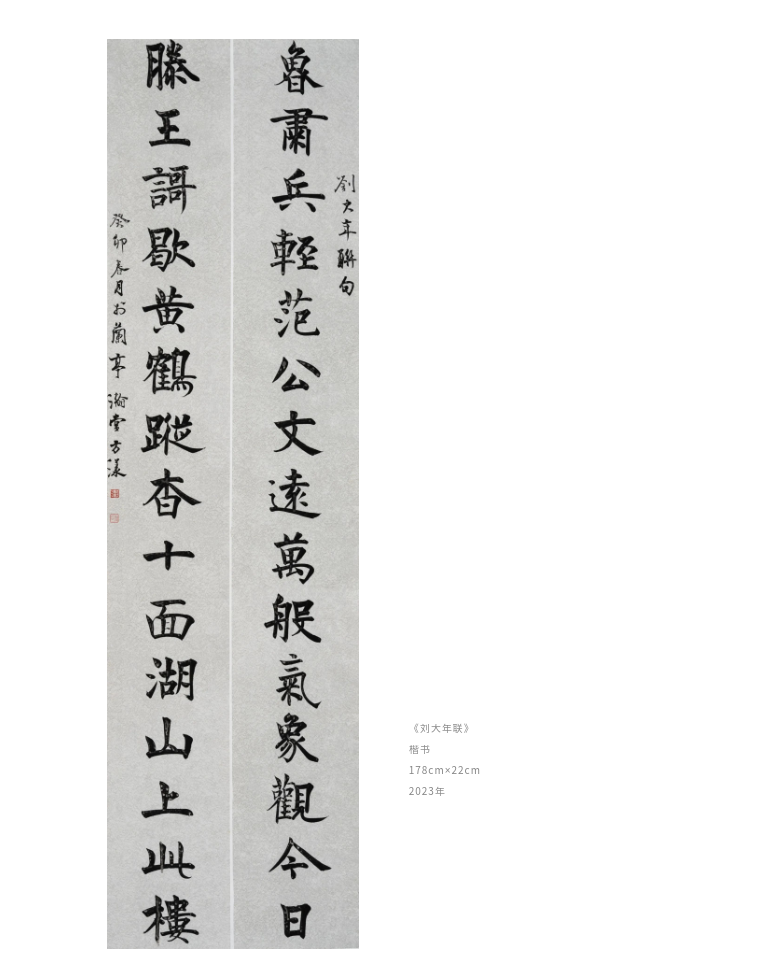 劉大年聯句
魯肅兵輕范公文遠萬般氣象觀今日
滕王謌歇黄鶴蹤杳十面湖山上此樓
癸卯春月於蘭亭瀚堂方漾
《刘大年联》
楷书
178cm×22cm
2023年